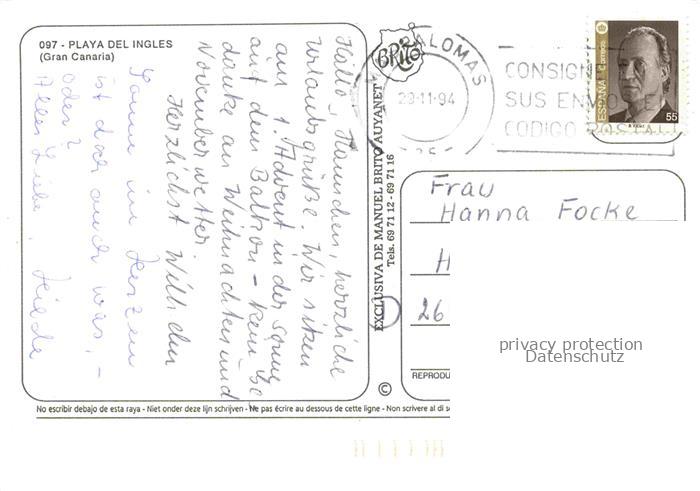 097 - PLAYA DEL INGLES
(Gran Canaria)
Hallo, Hannchen, herzliche
Urlaubsgrüße. Wir sitzen
am 1. Advent in der Sonne
auf dem Balkon - kein Ge-
danke an Weihnachten und
Novemberwetter.
Herzlichst Wilhelm
Sonne im Herzen
ist doch auch was, -
oder?
Alles Liebe, Friede
BRITO
EXCLUSIVA DE MANUEL BRITO AUYANET
Tels. 69 71 12 - 69 71 16
©
PALOMAS
29-11-94
CONSIGN
SUS ENV
CODIGO POSTAL
ESPAÑA
correos
55
Frau
Hanna Focke
H
26
privacy protection
Datenschutz
REPRODU
No escribir debajo de esta raya - Niet onder deze lijn schrijven - Ne pas écrire au dessous de cette ligne - Non scrivere al di s